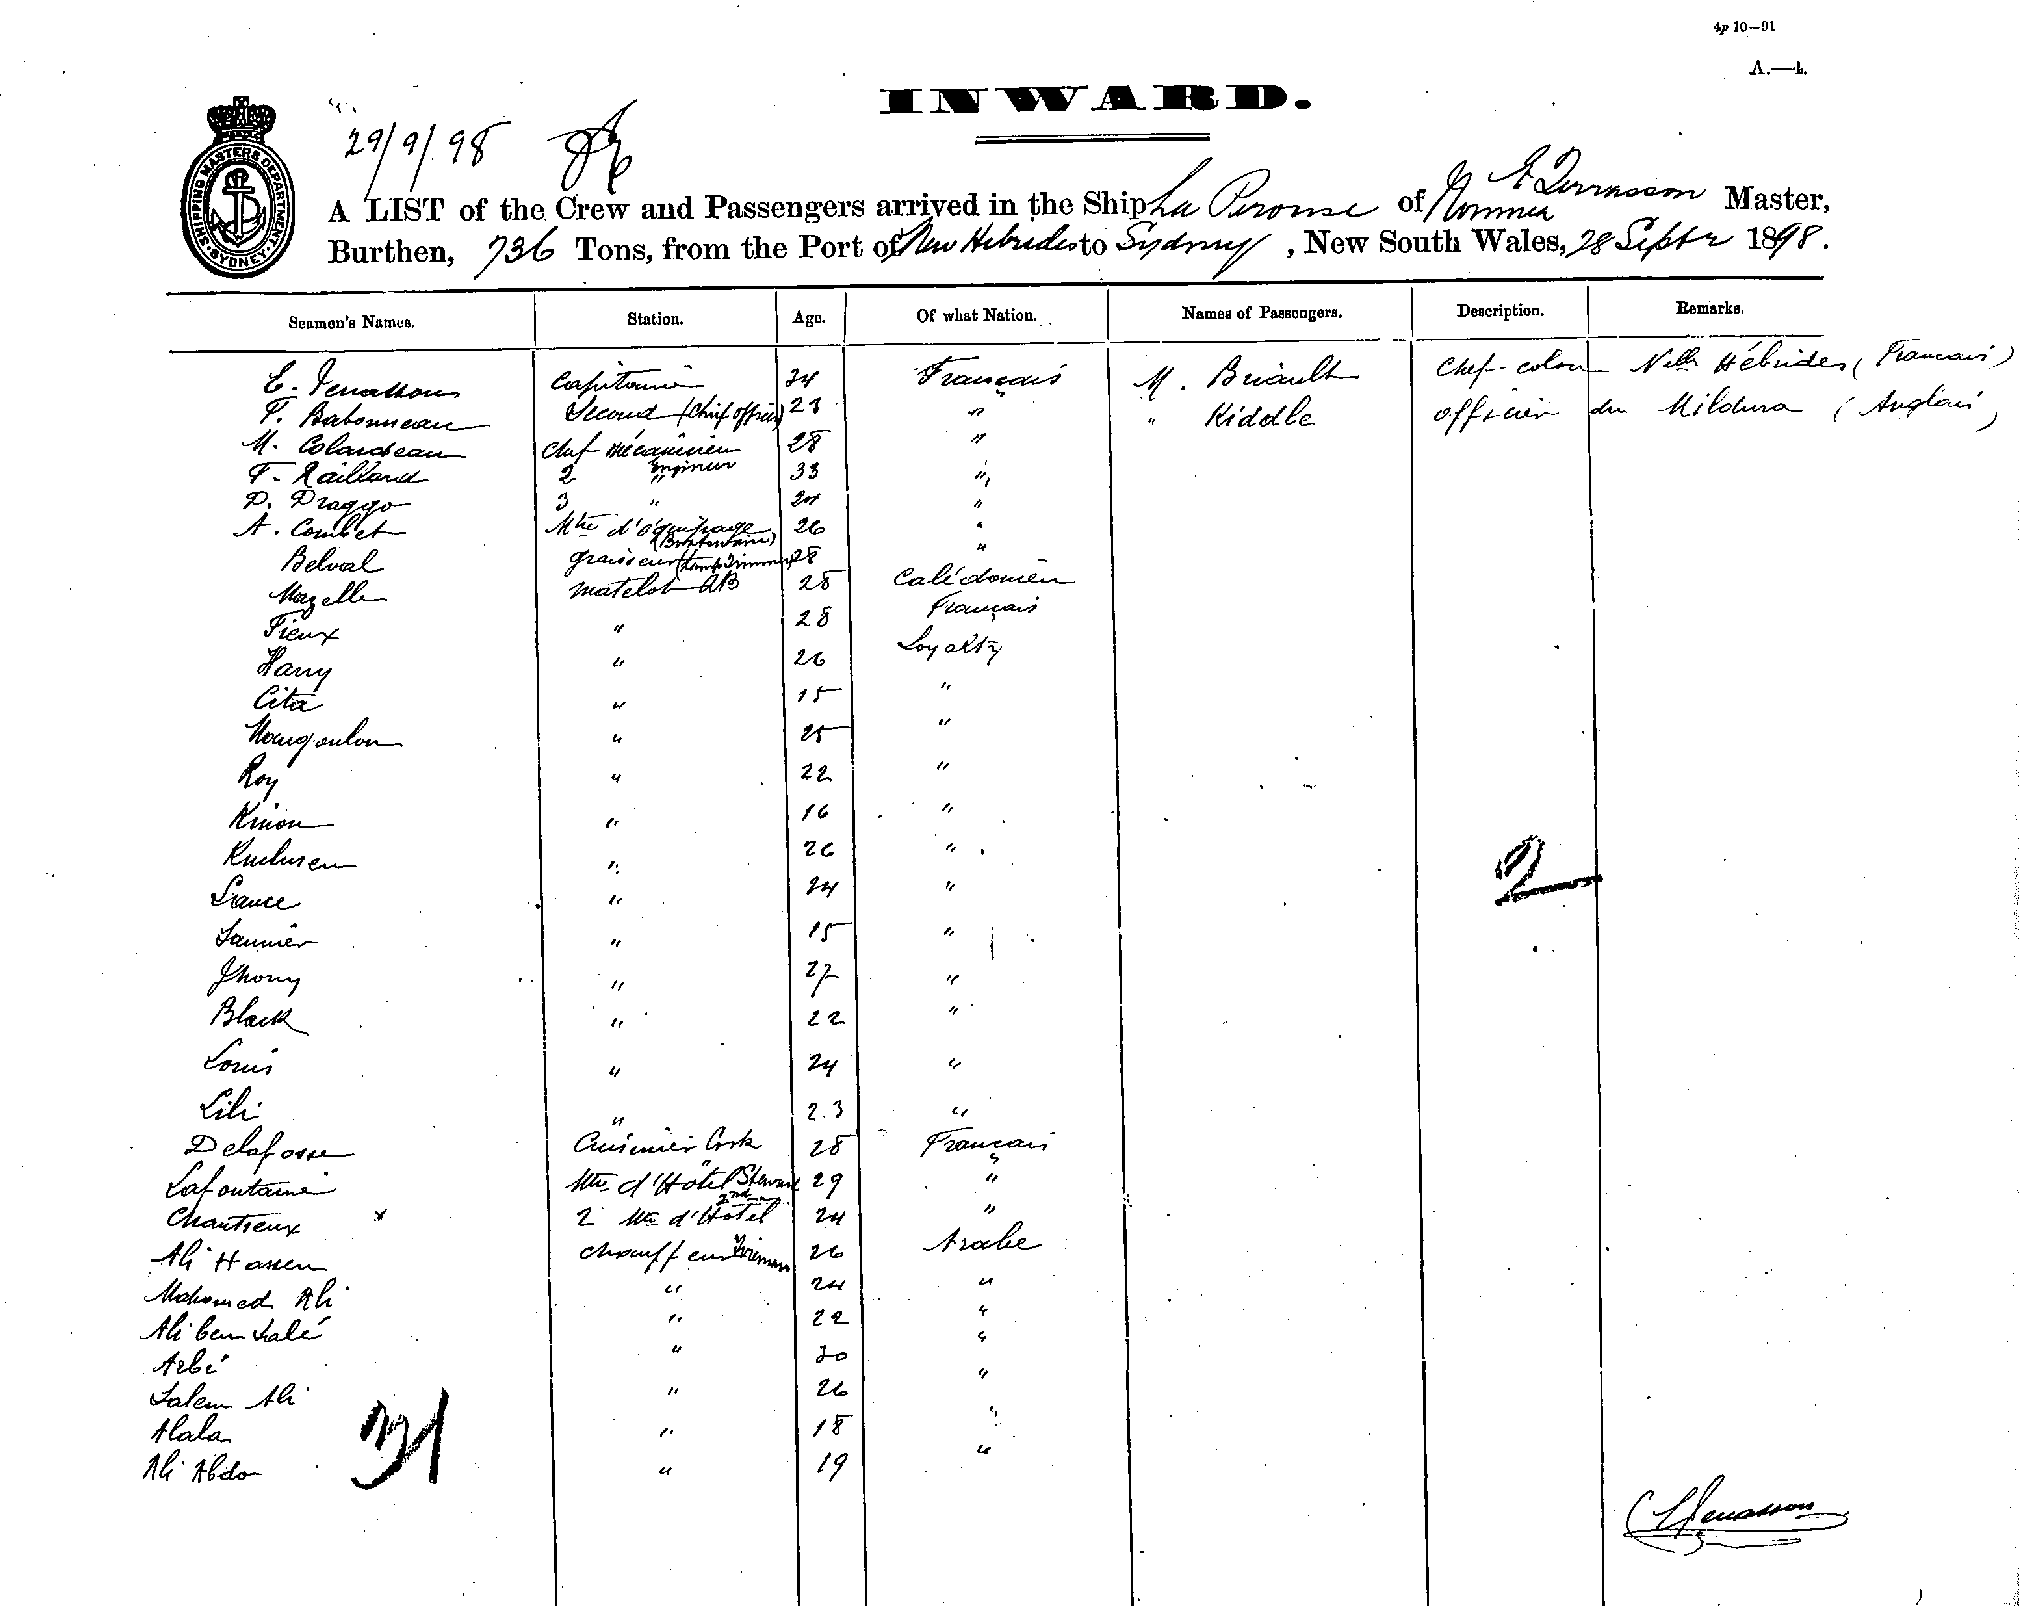 4p 10—91
A.—4.
INWARD.
29/9/98
SHIPPING MASTERS DEPARTMENT SYDNEY
A LIST of the Crew and Passengers arrived in the Ship La Perouse of Noumea E Terrasson Master,
Burthen, 736 Tons, from the Port of New Hebrides to Sydney, New South Wales, 28 Septr 1898.
Seamen's Names. Station. Age. Of what Nation. Names of Passengers. Description. Remarks.
E. Terrasson Capitaine 34 Français M. Briault Chef-colon Nelles Hébrides (Francais)
F. Babonneau Second (Chief officer) 23 " " Kiddle officier du Mildura (Anglais)
M. Colardeau Chef mécanicien 28 "
Engineer
F. Raillard 2 " 33 "
D. Draggo 3 " "
A. Combet Mtre d'équipage 26 "
(Boatswain)
Belval graisseur (Lamp Trimmer) 28 "
Mazelle matelot AB 28 Calédonien
Fieux " 28 Français
Harry " 26 Loyalty
Cita " 15 "
" 25 "
Roy " 22 "
Kinon " 16 "
" 26 "
" 24 "
Saunier " 15 "
Jhony " 27 "
Black " 22 "
Louis " 24 "
Lili " 23 "
Delafosse Cuisinier Cook 28 Français
Lafontaine Mtre d'Hôtel Steward 29 "
2nd
Chantreux x 2 Mtre d'Hôtel 24 "
Ali Hassen Chauffeur Fireman 26 Arabe
Mohomed Ali " 24 "
Ali ben Salé " 22 "
Arbi " "
Salem Ali " 26 "
Alala " 18 "
Ali Abdo " 19 "
31
2
E Terrasson